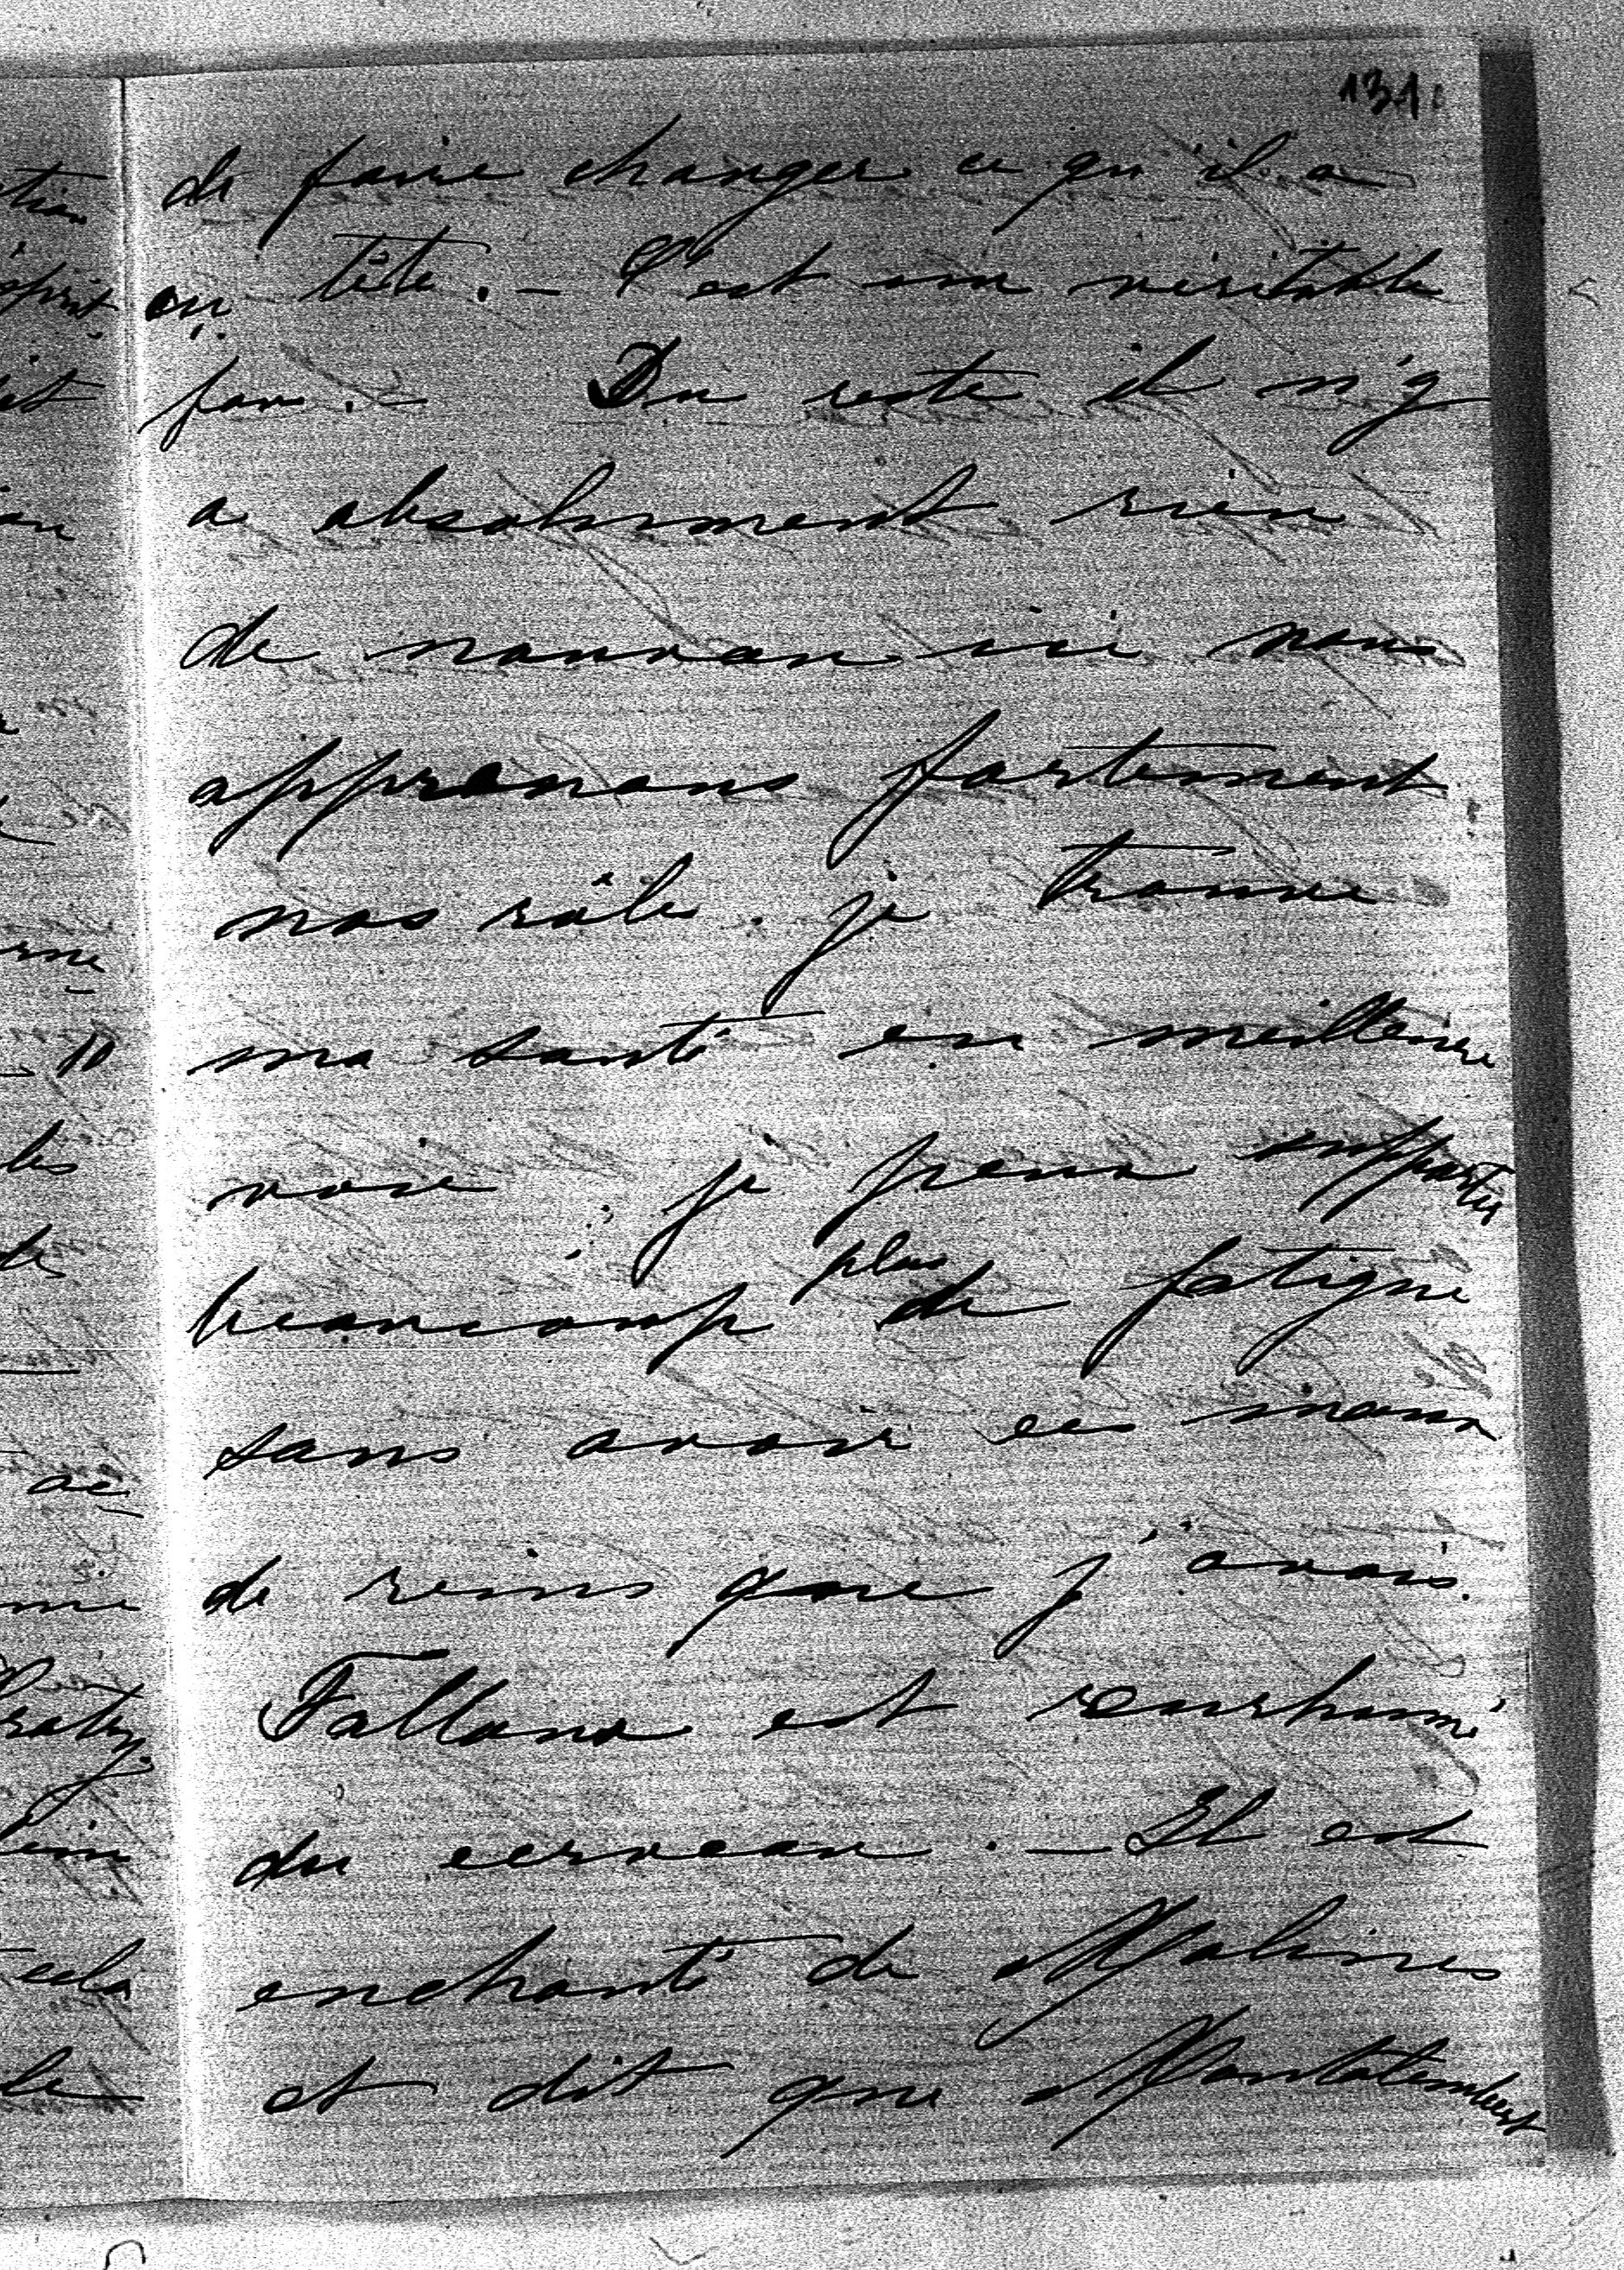 131.
de faire changer ce qu'il a
en tête. – C'est un véritable
fou. – Du reste il n'y
a absolument rien
de nouveau ici nous
apprenons fortement
nos rôles. je trouve
ma santé en meilleure
voie. je peux supporter
plus
beaucoup de fatigue
sans avoir ces maux
de reins que j'avais.
Falloux est enrhumé
du cerveau. – Il est
enchanté de Malines
et dit que Montalembert